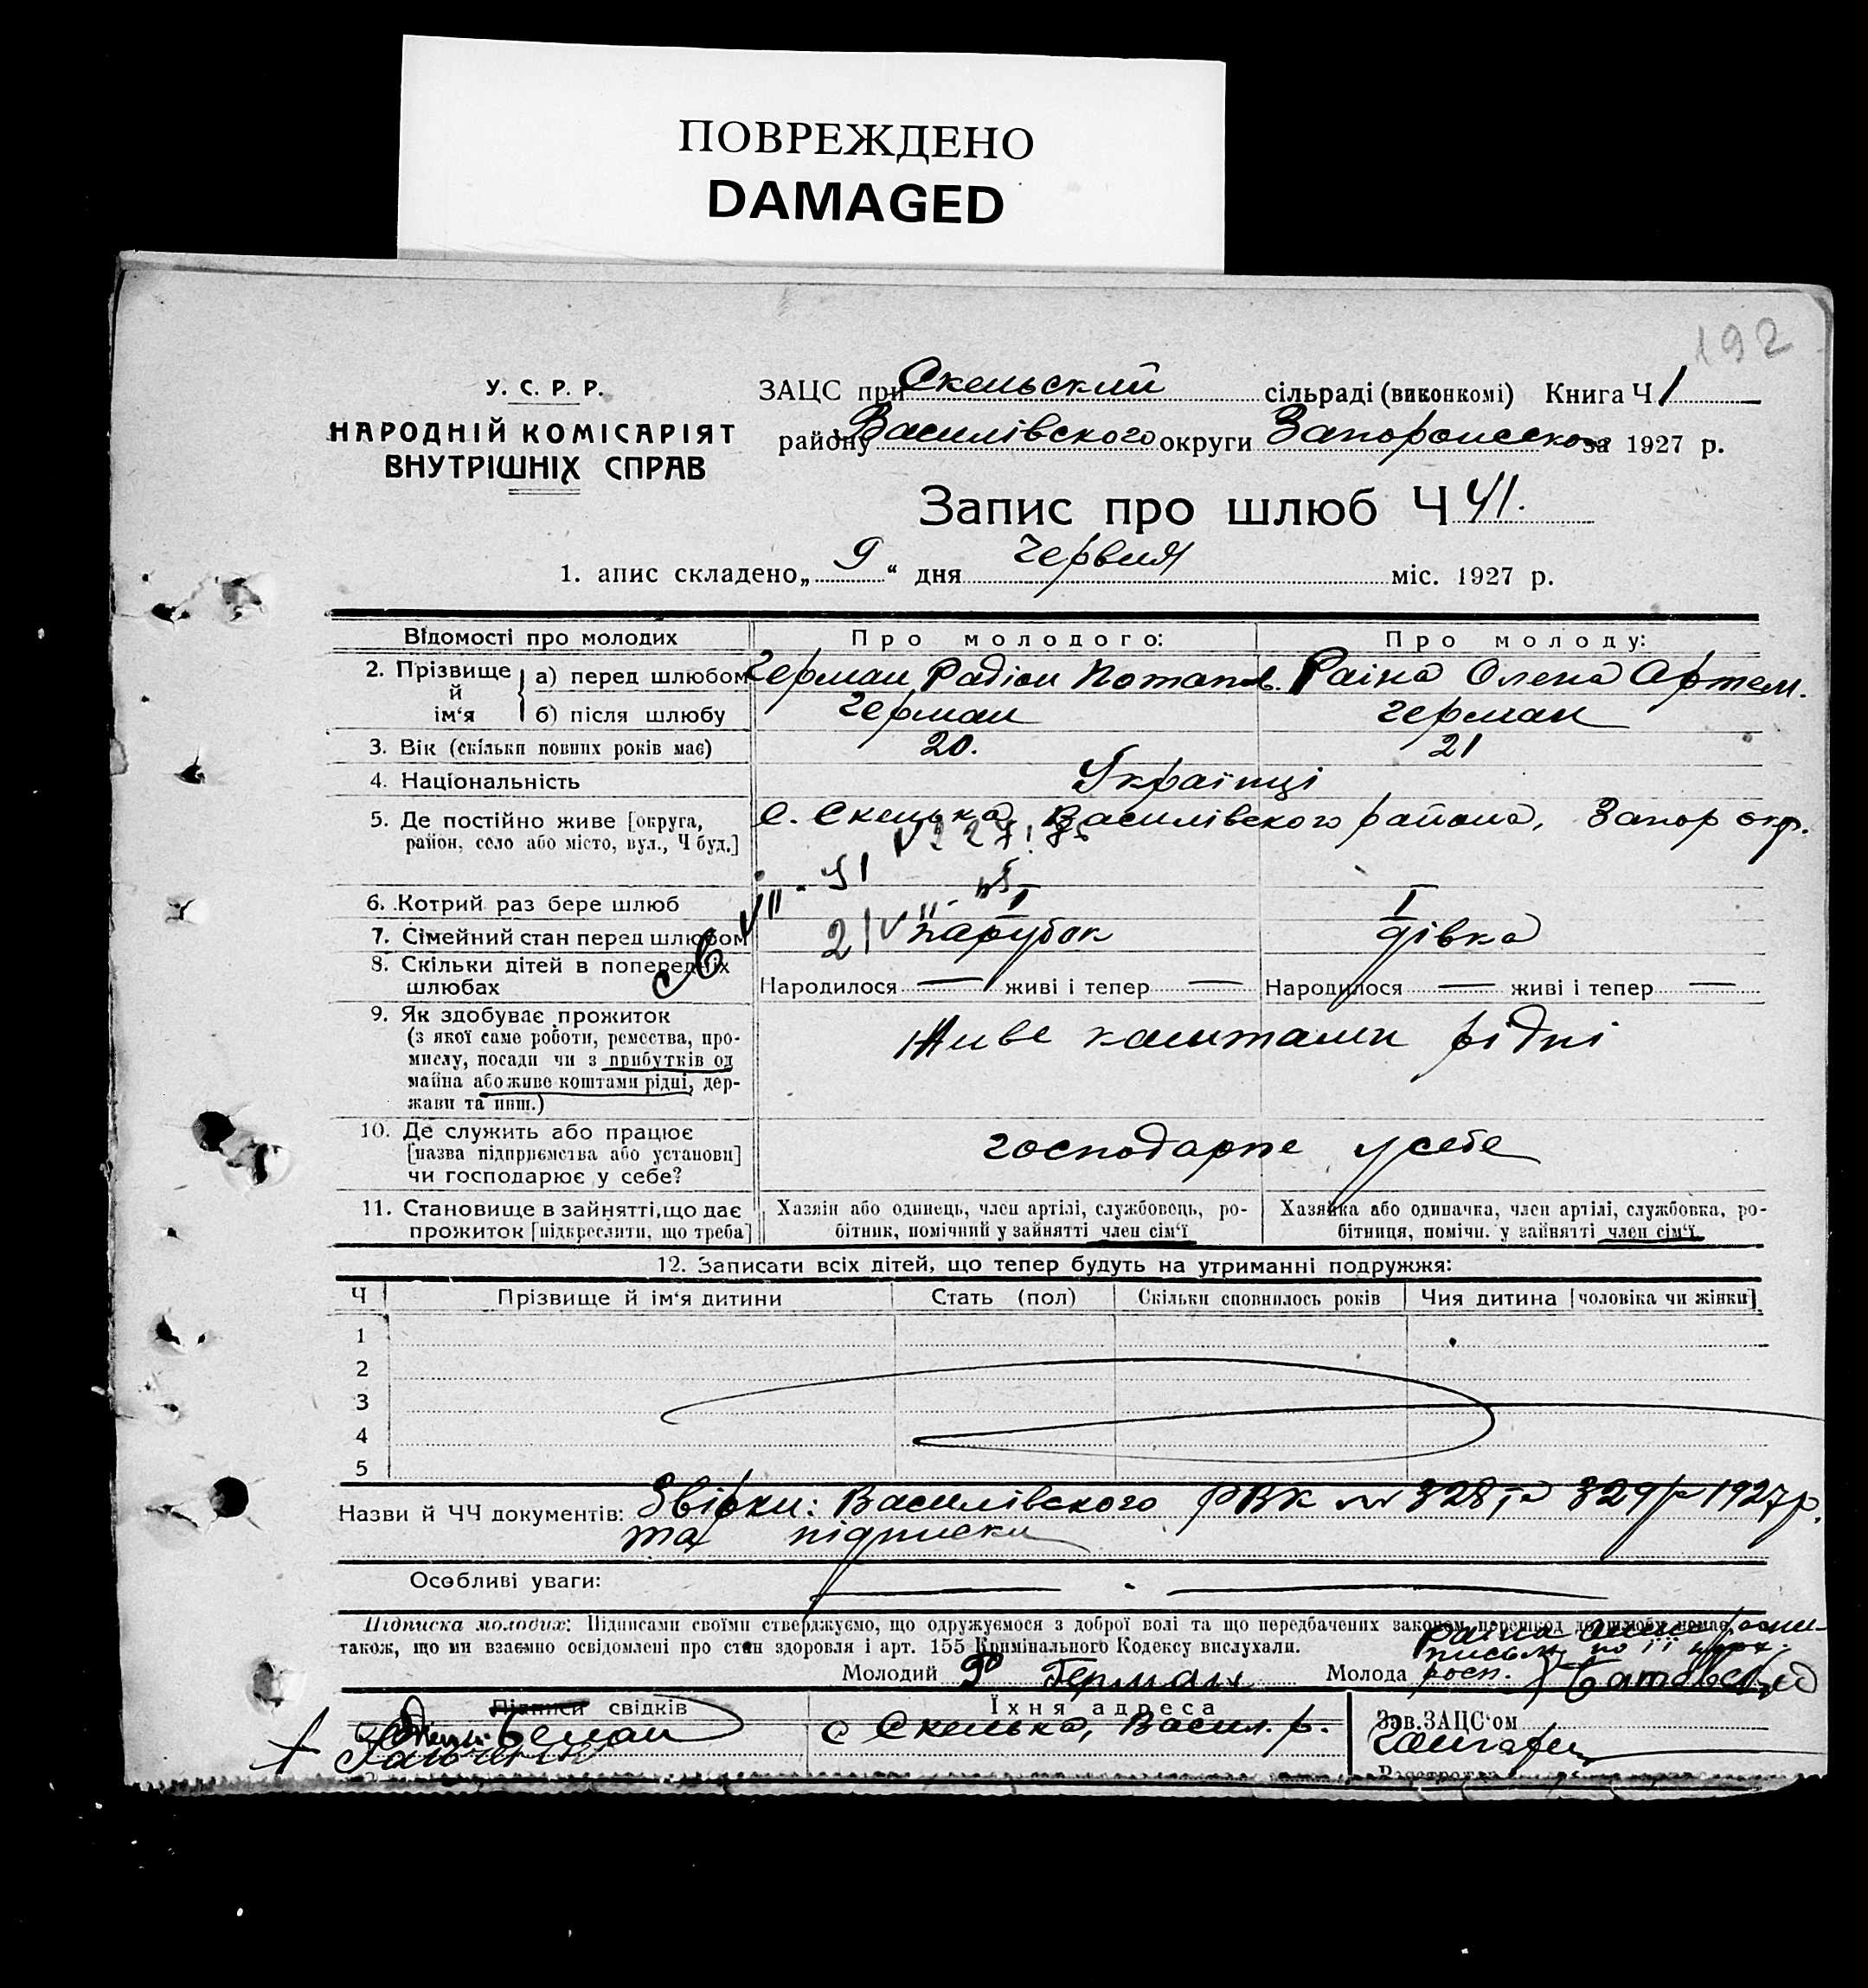 ПОВРЕЖДЕНО
DAMAGED
192
У. С. Р. Р.
НАРОДНІЙ КОМІСАРІЯТ
ВНУТРІШНІХ СПРАВ
ЗАЦС при Скельский сільраді (виконкомі) Книга Ч 1
району Василівского округи Запорожского за 1927 р.
Запис про шлюб Ч 41.
1. апис складено „ 9 “ дня Червня міс. 1927 р.
Відомості про молодих Про молодого: Про молоду:
2. Прізвище й ім‘я
а) перед шлюбом Герман Радіон Потапов. Раіна Олена Артем.
б) після шлюбу Герман Герман
3. Вік (скільки повних років має) 20. 21
4. Національність Українці
5. Де постійно живе [округа, район, село або місто, вул., Ч буд.] С. Скелька, Василівского района, Запор окр.
6. Котрий раз бере шлюб I I
7. Сімейний стан перед шлюбом парубок дівка
8. Скільки дітей в попередніх шлюбах Народилося — живі і тепер — Народилося — живі і тепер —
9. Як здобуває прожиток
(з якої саме роботи, ремества, про-
мислу, посади чи з прибутків од
майна або живе коштами рідні, дер-
жави та инш.)
Живе каштами рідні
10. Де служить або працює
[назва підприємства або установи]
чи господарює у себе?
господарює у себе
11. Становище в зайнятті, що дає
прожиток [підкреслити, що треба]
Хазяін або одинець, член артілі, службовець, ро-
бітник, помічний у зайнятті член сім‘ї
Хазяйка або одиначка, член артілі, службовка, ро-
бітниця, помічн. у зайнятті член сім‘ї
12. Записати всіх дітей, що тепер будуть на утриманні подружжя:
Ч Прізвище й ім‘я дитини Стать (пол) Скільки сповнилось років Чия дитина [чоловіка чи жінки]
1
2
3
4
5
Назви й ЧЧ документів: Звірки: Василівского РВК 328 та 329 1927 р.
та підписки
Особливі уваги:
Підписка молодих: Підписами своїми стверджуємо, що одружуємося з доброї волі та що передбачених законом перешкод до шлюбу немає,
також, що ми взаємно освідомлені про стан здоровля і арт. 155 Кримінального Кодексу вислухали.
Молодий Р Герман Молода
Підписи свідків Їхня адреса Зав. ЗАЦС‘ом
с Скелька, Васил. р.